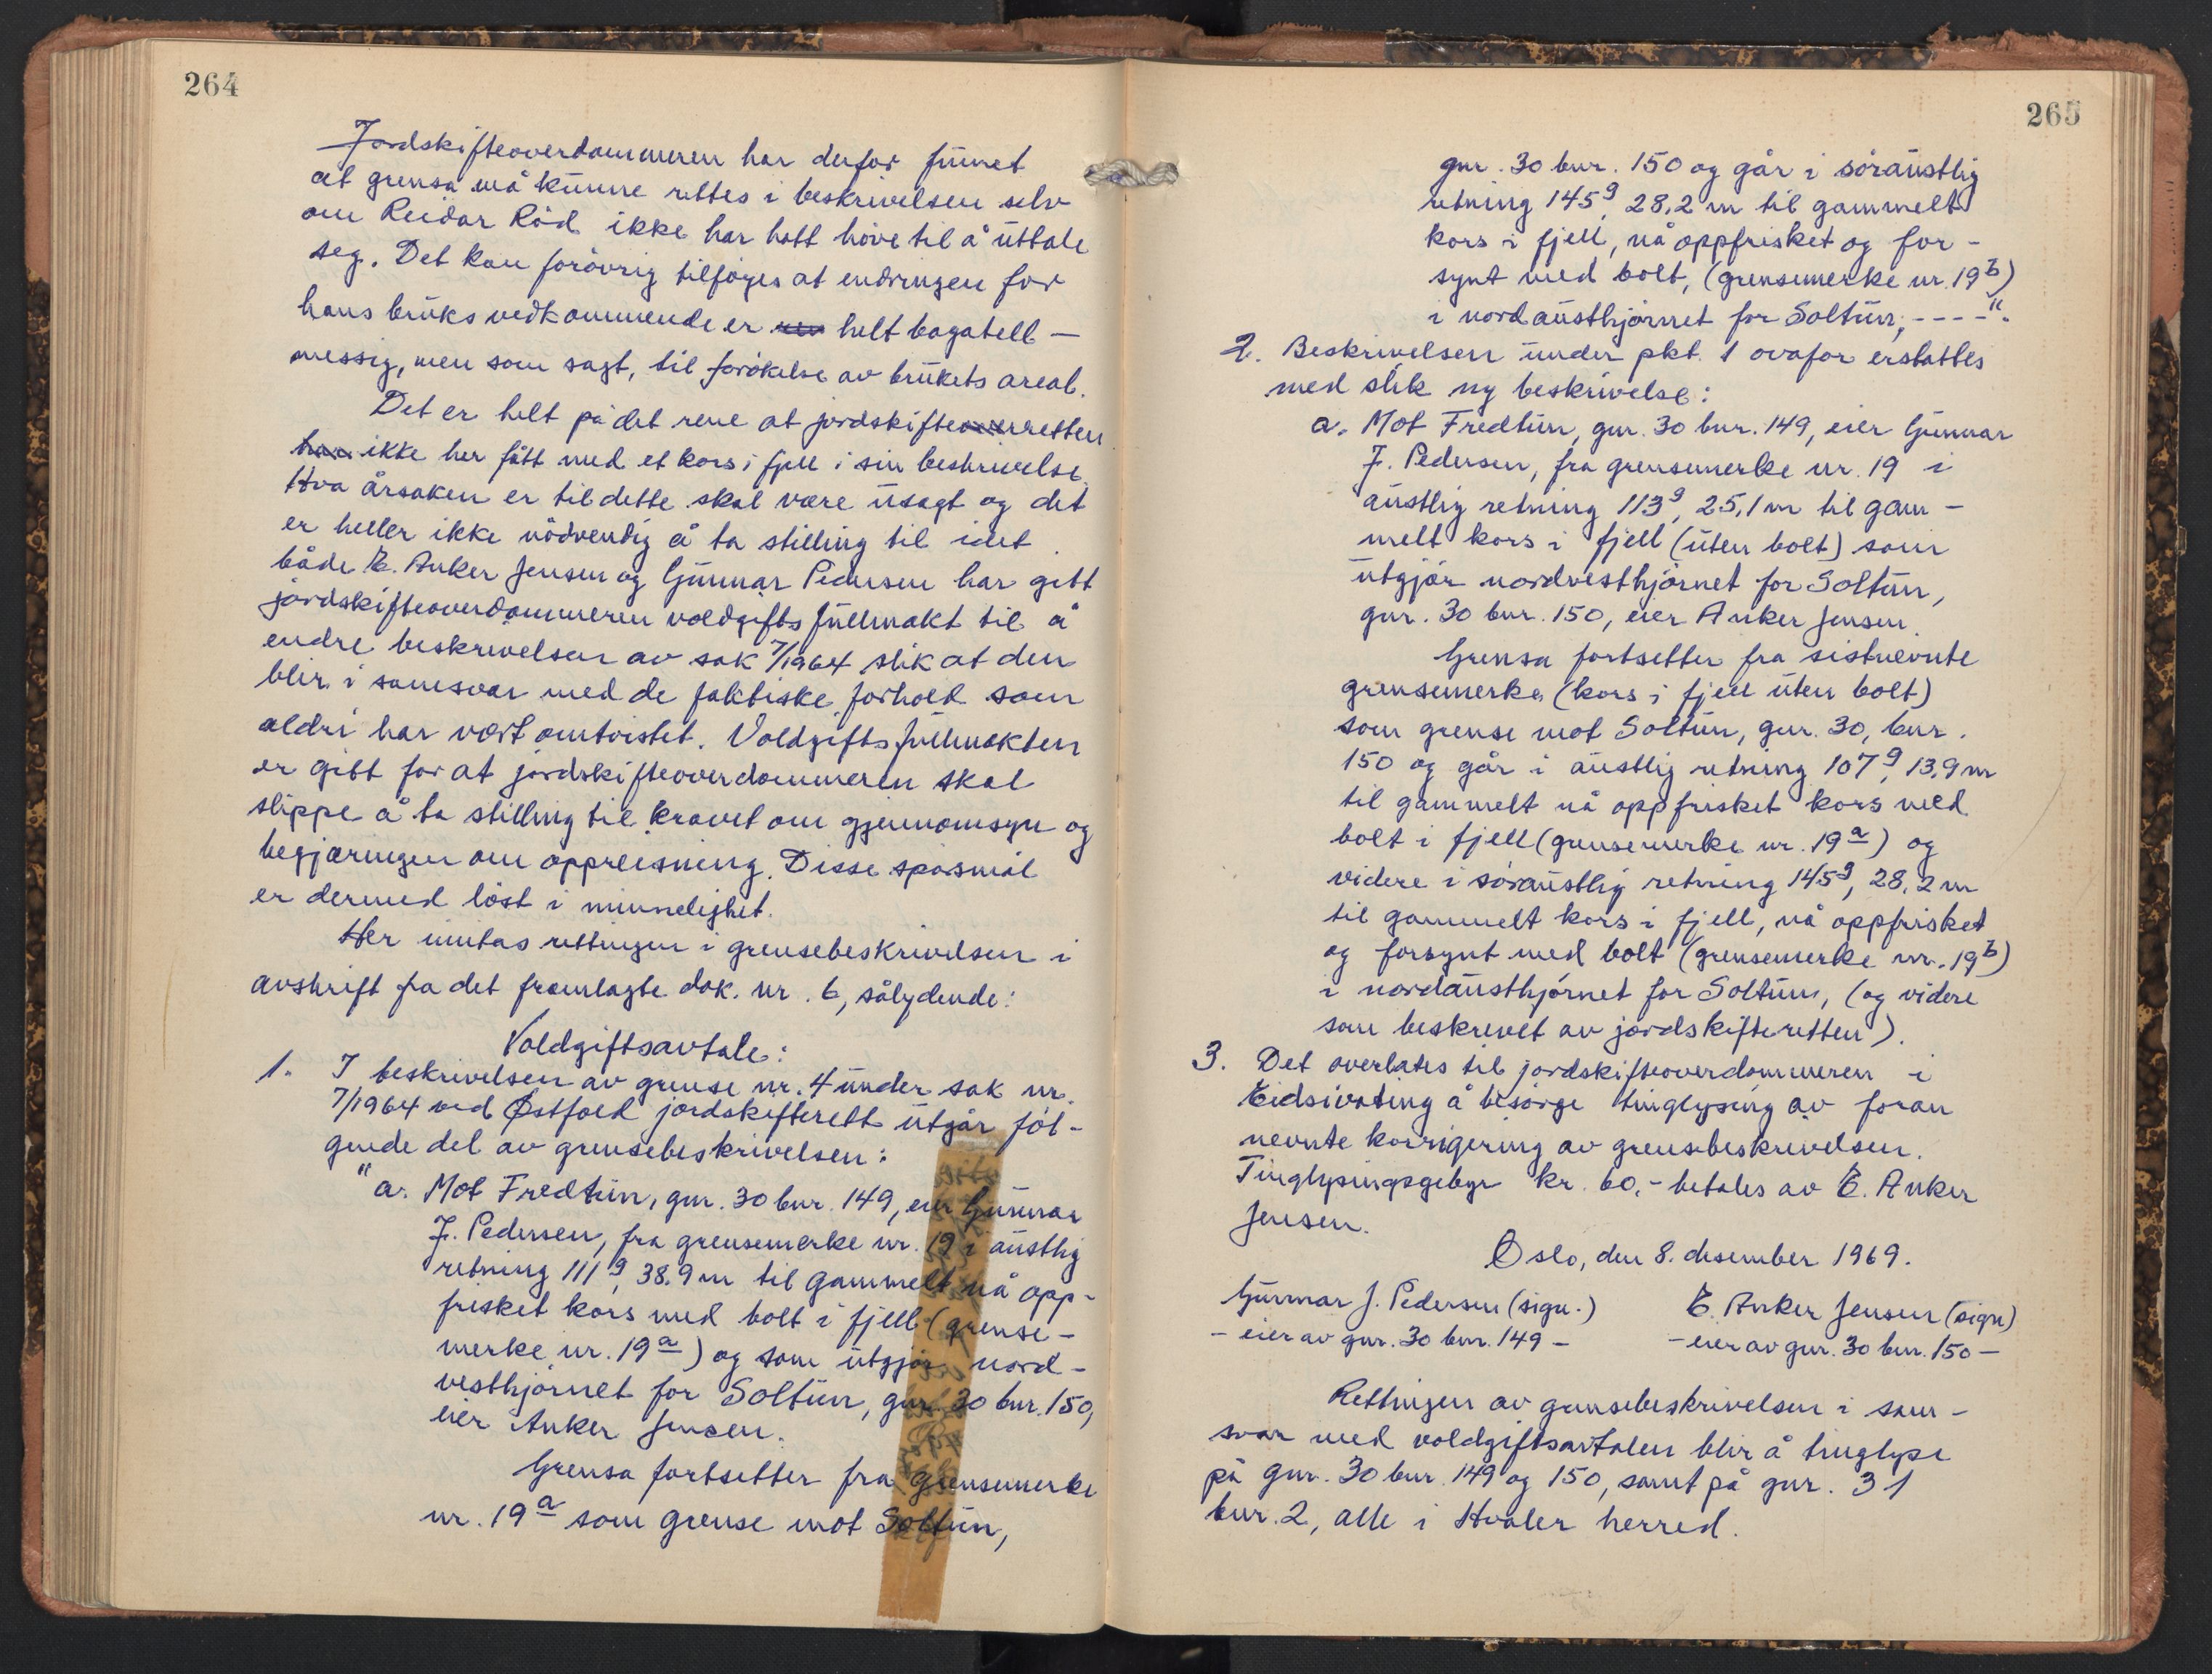 264
Jordskifteoverdommeren har derfor funnet
at grensa må kunne rettes i beskrivelsen selv
om Reidar Röd ikke har hatt höve til å uttale
seg. Det kan forövrig tilföyes at endringen for
hans bruks vedkommende er ren helt bagatell-
messig, men som sagt, til forökelse av brukets areal.
Det er helt på det rene at jordskifteoverretten
har ikke her fått med et kors i fjell i sin beskrivelse.
Hva årsaken er til dette skal være usagt og det
er heller ikke nödvendig å ta stilling til idet
både E. Anker Jensen og Gunnar Pedersen har gitt
jordskifteoverdommeren voldgiftsfullmakt til å
endre beskrivelsen av sak 7/1964 slik at den
blir i samsvar med de faktiske forhold som
aldri har vært omtvistet. Voldgiftsfullmakten
er gitt for at jordskifteoverdommeren skal
slippe å ta stilling til kravet om gjennomsyn og
begjæringen om oppreisning. Disse spörsmål
er dermed löst i minnelighet.
Her inntas rettingen i grensebeskrivelsen i
avskrift fra det framlagte dok. nr. 6, sålydende:
Voldgiftsavtale:
1. I beskrivelsen av grense nr. 4 under sak nr.
7/1964 ved Østfold jordskifterett utgår föl-
gende del av grensebeskrivelsen:
"a. Mot Fredtun, gnr. 30 bnr. 149, eier Gunnar
J. Pedersen, fra grensemerke nr. 19 i austlig
retning 111g, 38,9 m til gammelt nå opp-
frisket kors med bolt i fjell (grense-
merke nr. 19a) og som utgjör nord-
vesthjörnet for Soltun, gnr. 30 bnr. 150,
eier Anker Jensen.
Grensa fortsetter fra grensemerke
nr. 19a som grense mot Soltun,
265
gnr. 30 bnr. 150 og går i söraustlig
retning 145g, 28,2 m til gammelt
kors i fjell, nå oppfrisket og for-
synt med bolt, (grensemerke nr. 19b)
i nordausthjörnet for Soltun, - - - -".
2. Beskrivelsen under pkt. 1 ovafor erstattes
med slik ny beskrivelse:
a. Mot Fredtun, gnr. 30 bnr. 149, eier Gunnar
J. Pedersen, fra grensemerke nr. 19 i
austlig retning 113g, 25,1 m til gam-
melt kors i fjell (uten bolt) som
utgjör nordvesthjörnet for Soltun,
gnr. 30 bnr. 150, eier Anker Jensen.
Grensa fortsetter fra sistnevnte
grensemerke (kors i fjell uten bolt)
som grense mot Soltun, gnr. 30, bnr.
150 og går i austlig retning 107g, 13,9 m
til gammelt nå oppfrisket kors med
bolt i fjell (grensemerke nr. 19a) og
videre i söraustlig retning 145g, 28,2 m
til gammelt kors i fjell, nå oppfrisket
og forsynt med bolt (grensemerke nr. 19b)
i nordausthjörnet for Soltun, (og videre
som beskrevet av jordskifteretten).
3. Det overlates til jordskifteoverdommeren i
Eidsivating å besörge tinglysing av foran
nevnte korrigering av grensebeskrivelsen.
Tinglysingsgebyr kr. 60,- betales av E. Anker
Jensen.
Oslo, den 8. desember 1969.
Gunnar J. Pedersen (sign.) E. Anker Jensen (sign)
- eier av gnr. 30 bnr. 149 - - eier av gnr. 30 bnr. 150 -
Rettingen av grensebeskrivelsen i sam-
svar med voldgiftsavtalen blir å tinglyse
på gnr. 30 bnr. 149 og 150, samt på gnr. 31
bnr. 2, alle i Hvaler herred.